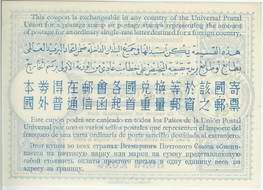 This coupon is exchangeable in any country of the Universal Postal
Union for a postage stamp or postage stamps representing the amount
of postage for an ordinary single-rate letter destined for a foreign country.
本券得在郵會各國兌換等於該國寄
國外普通信函起首重量郵資之郵票
Este cupón podrá ser canjeado en todos los Países de la Unión
Postal Universal por uno o varios sellos postales que representen el importe del
franqueo de una carta ordinaria de porte sencillo destinada al extranjero.
Этот купон во всех странах Всемирного Почтового Союза обмени-
вается на почтовую марку или марки на сумму представляющую
собой стоимость оплаты простого письма в один вес, отправляемого за границу.